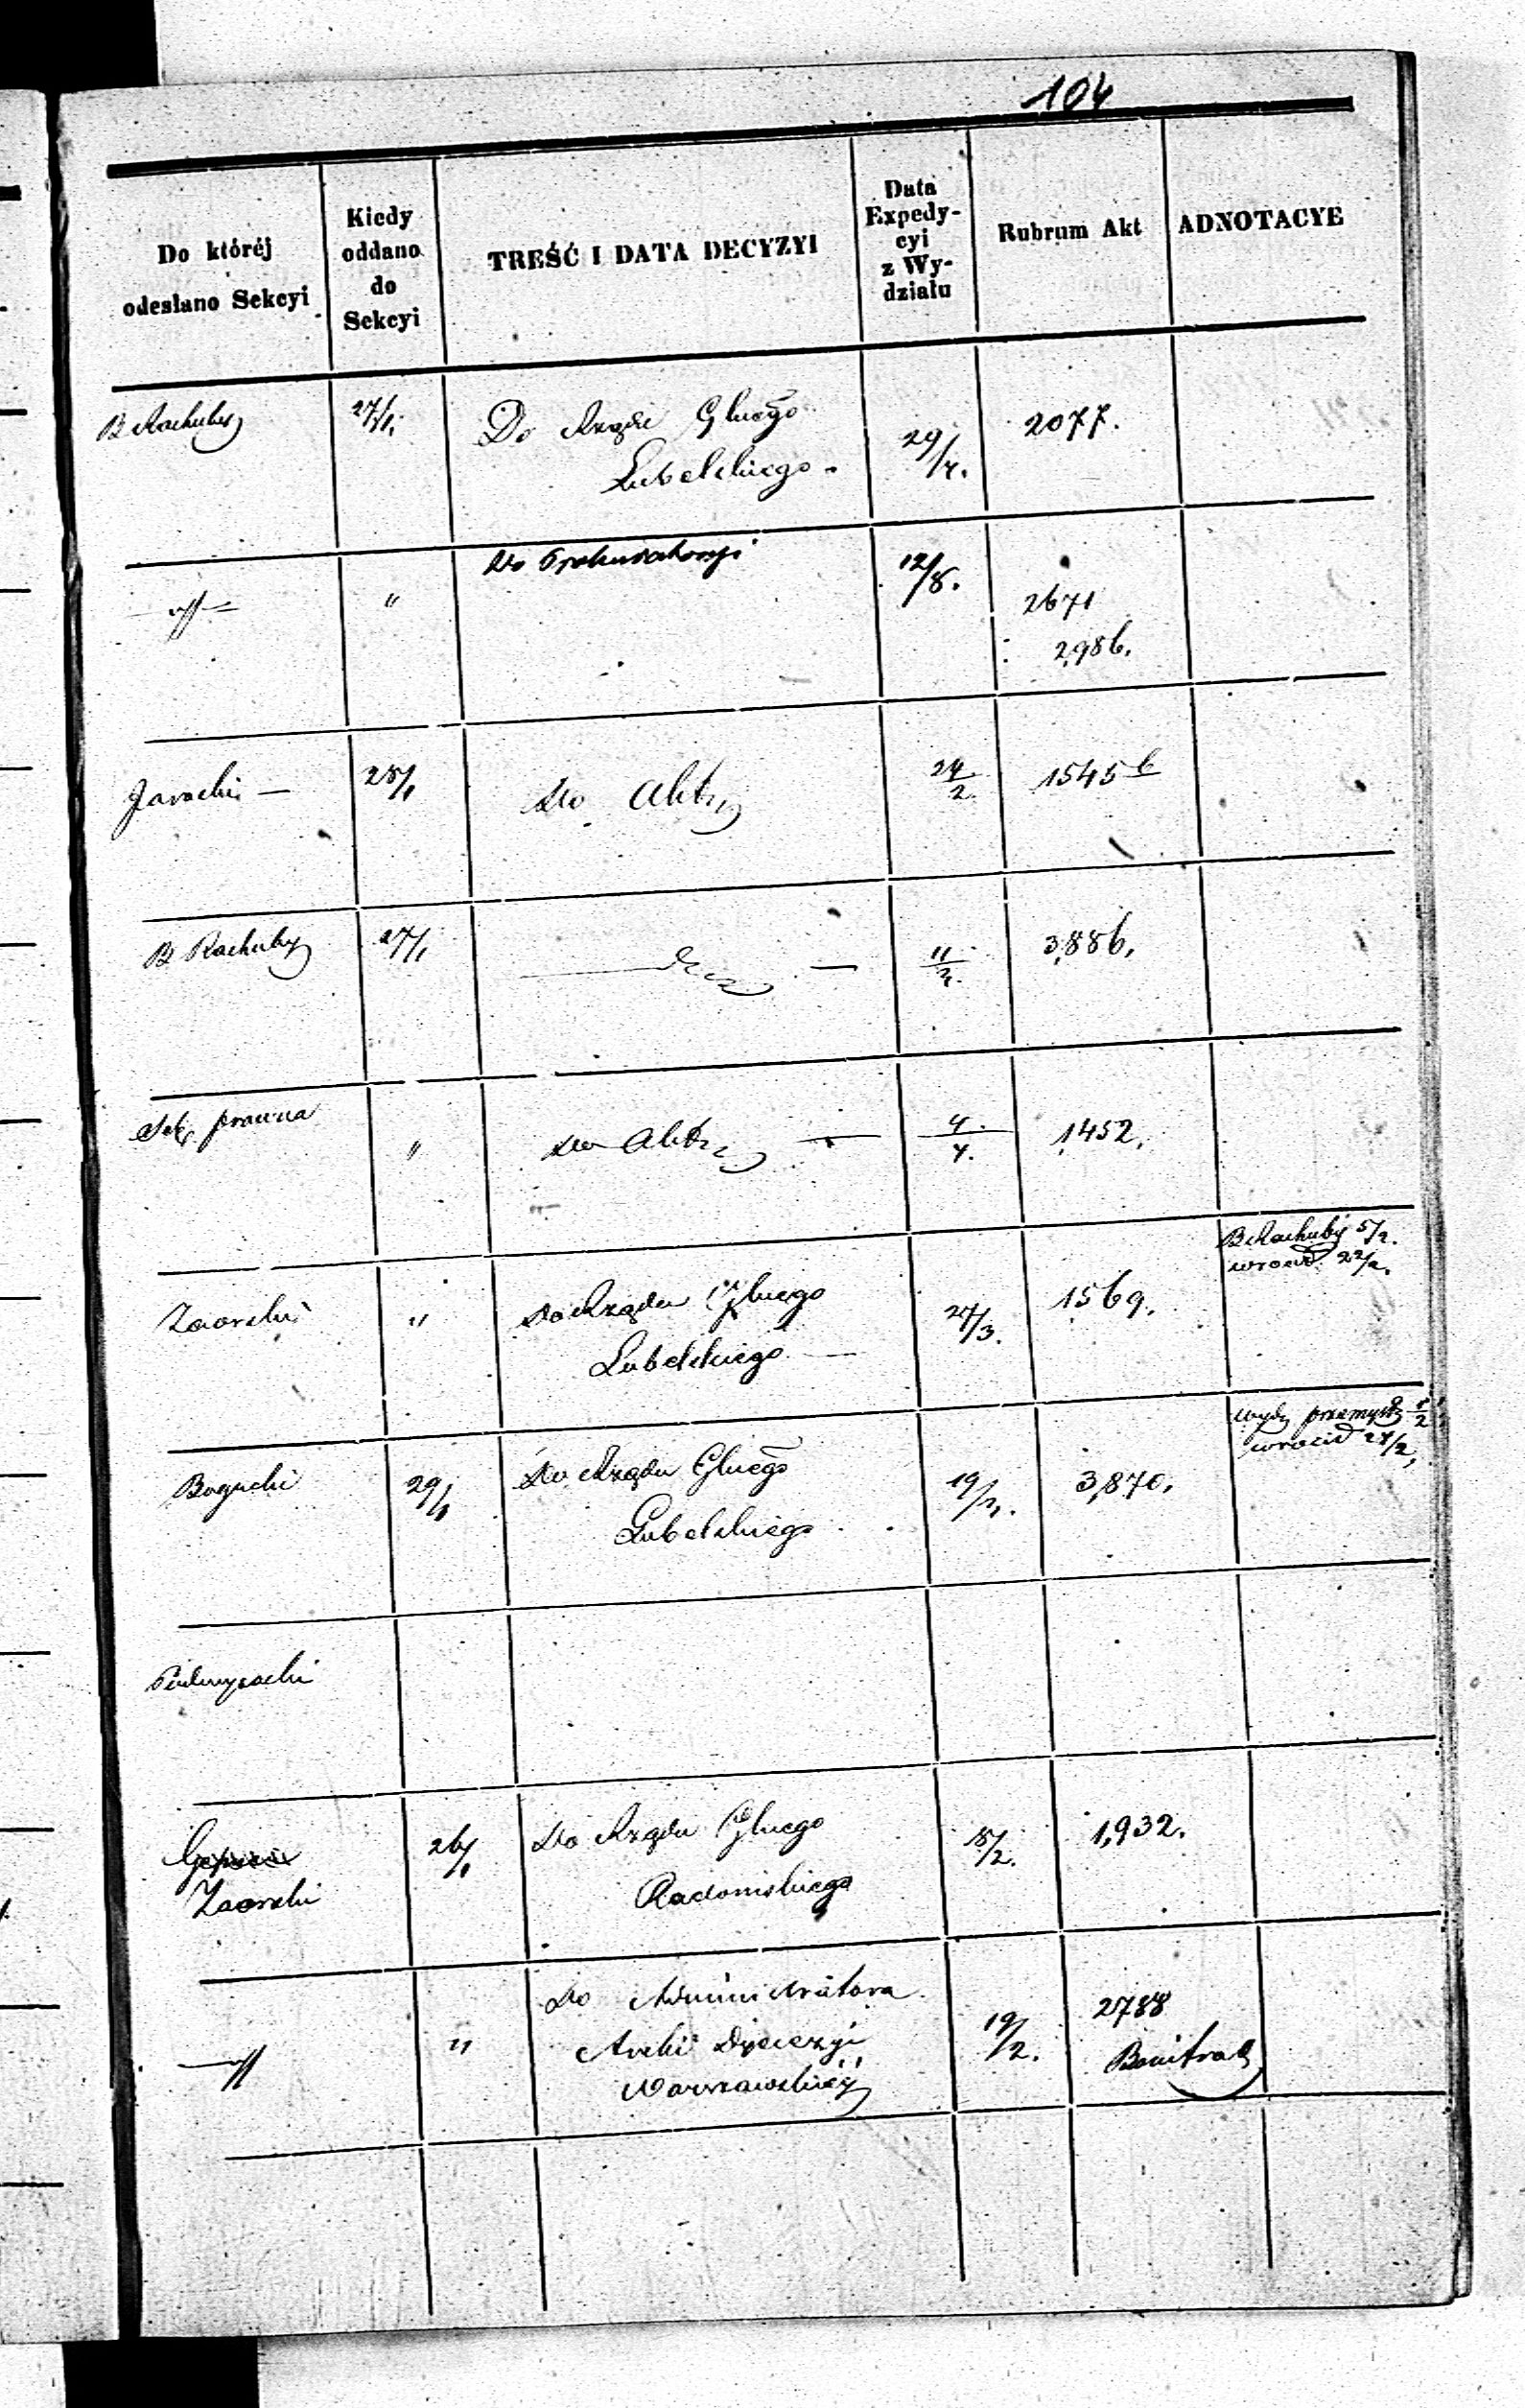 104
Do któréj
odesłano Sekcyi
Kiedy
oddano
do
Sekcyi
TREŚĆ I DATA DECYZYI
Data
Expedy-
cyi
z Wy-
działu
Rubrum Akt
ADNOTACYE
B Rachuby
27/1.
Do Rządu Głnego
Lubelskiego.
29/4.
2077.
"
Do Prokuratoryi
12/8.
2671
2986.
Jarocki —
28/1
Do Akt
24/2
1545 b
B Rachuby
27/1
11/2.
3,886.
Sek. prawna
"
Do Akt
4./4.
1452.
Zaorski
"
Do Rządu Głnego
Lubelskiego —
27/3.
1569.
B Rachuby 5/2.
wrócił 22/2.
Bogucki
29/1
Do Rządu Głnego
Lubelskiego
19/2.
3,870.
Wydz. przemysł
wrócił 27/2,
Zaorski
26/1
Do Rządu Głnego
Radomskiego
15/2.
1,932.
"
Do Administratora
Archi Dyecezyi
Warszawskiéj
19/2.
2788